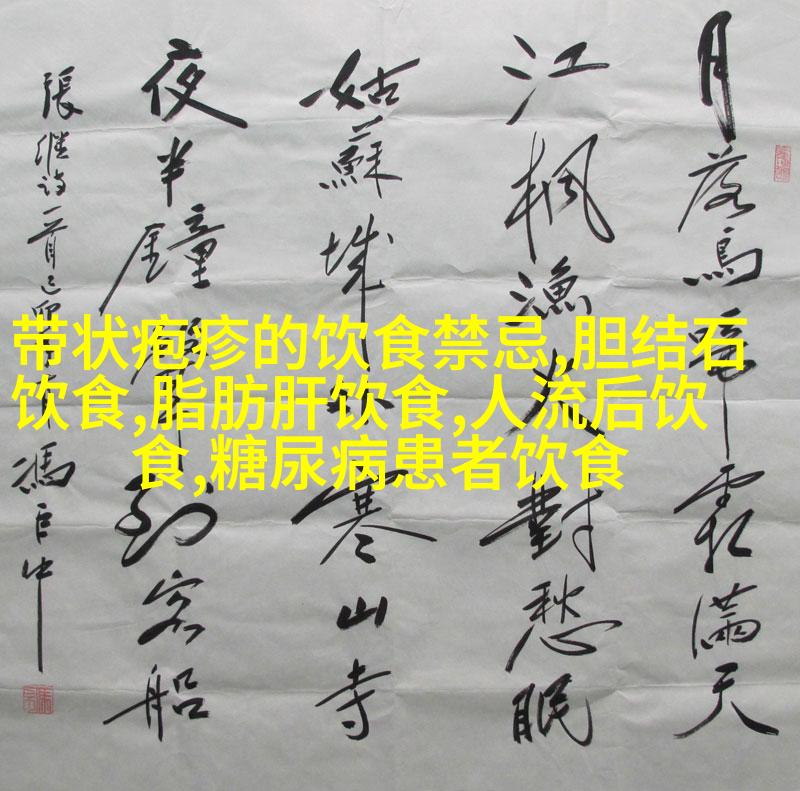 月落烏啼霜滿天
江楓漁火對愁眠
姑蘇城外寒山寺
夜半鐘聲到客船
張繼詩一首己卯
带状疱疹的饮食禁忌,胆结石
饮食,脂肪肝饮食,人流后饮
食,糖尿病患者饮食